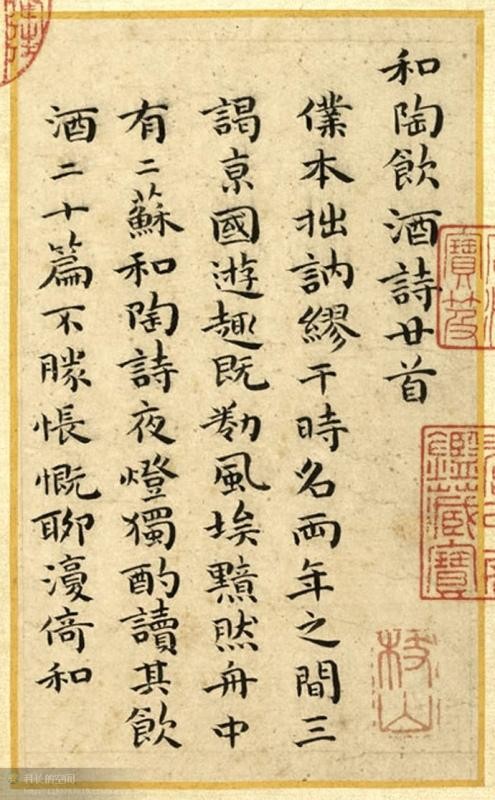 和陶飲酒詩廿首
僕本拙訥繆干時名兩年之間三
謁京國遊趣既勌風埃黯然舟中
有二蘇和陶詩夜燈獨酌讀其飲
酒二十篇不勝悵慨聊漫倚和
寶笈
鑑藏寶
枝山
科长的空间